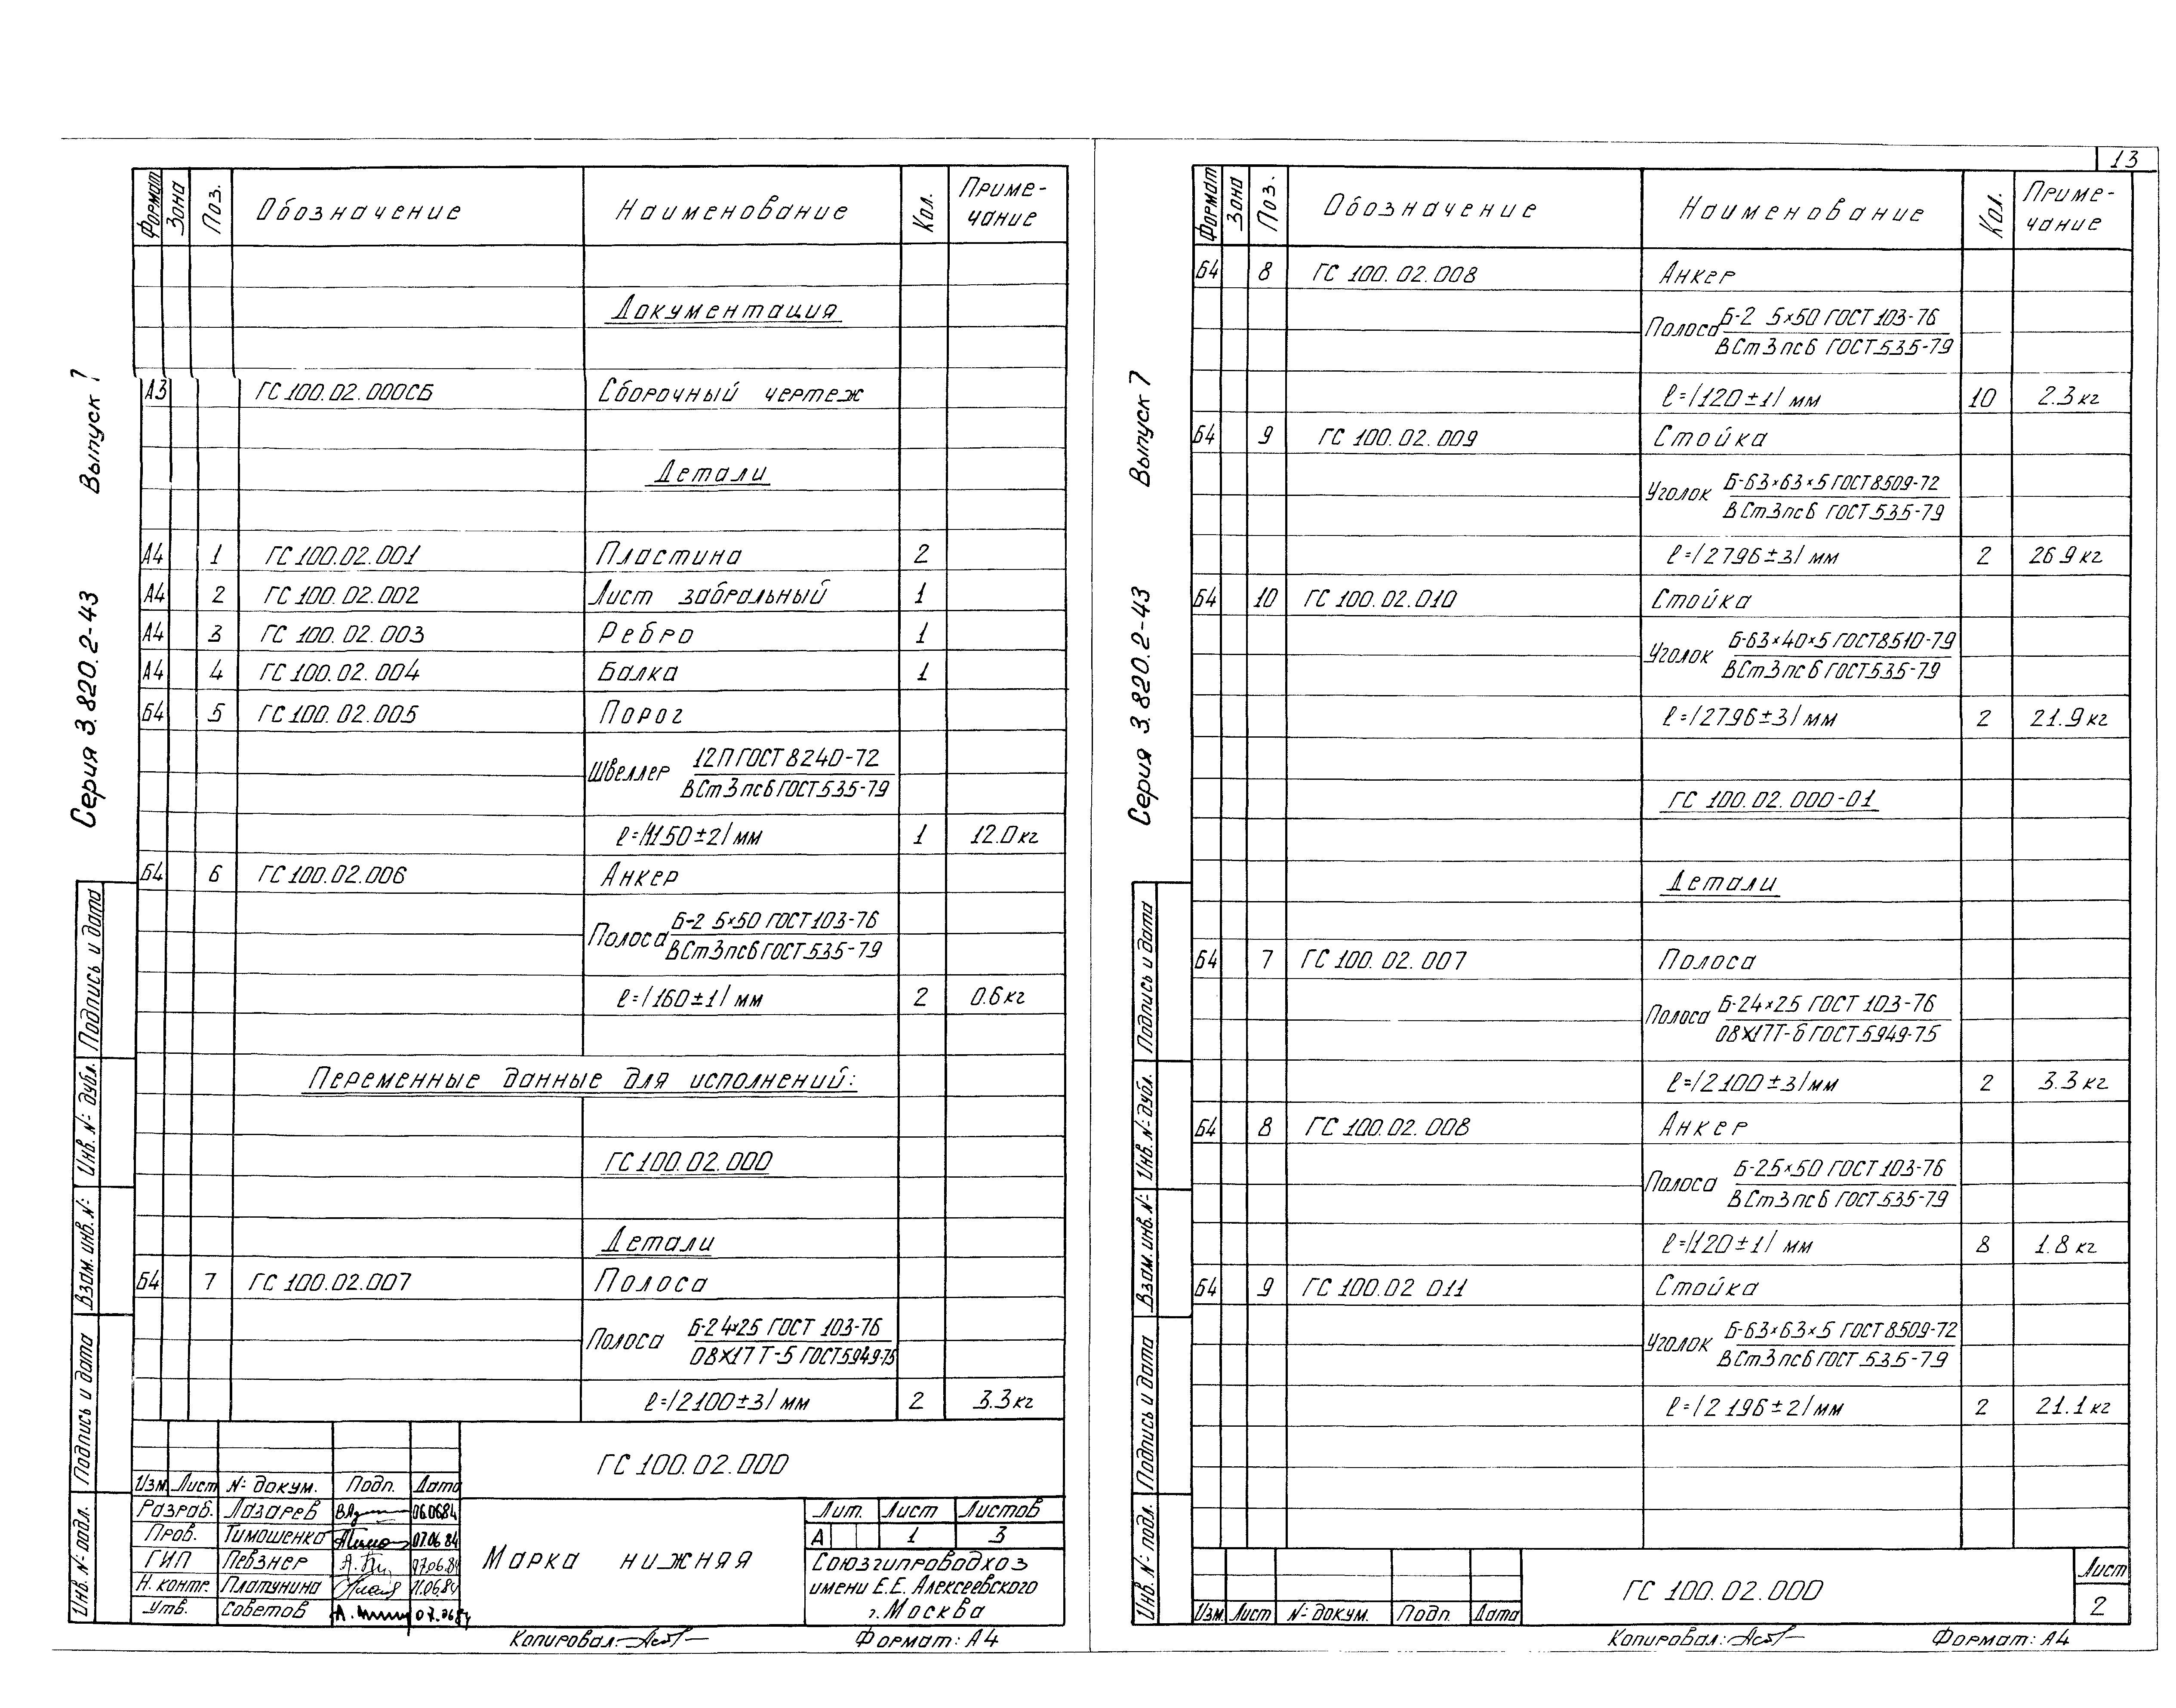 13
Серия 3.820.2-43 Выпуск 7
Формат Зона Поз. Обозначение Наименование Кол. Приме-
чание
Документация
А3 ГС 100.02.000СБ Сборочный чертеж
Детали
А4 1 ГС 100.02.001 Пластина 2
А4 2 ГС 100.02.002 Лист забральный 1
А4 3 ГС 100.02.003 Ребро 1
А4 4 ГС 100.02.004 Балка 1
Б4 5 ГС 100.02.005 Порог
Швеллер 12П ГОСТ 8240-72
ВСт3пс6 ГОСТ 535-79
ℓ=/1150±2/ мм 1 12.0кг
Б4 6 ГС 100.02.006 Анкер
Полоса Б-2 5×50 ГОСТ 103-76
ВСт3пс6 ГОСТ 535-79
ℓ=/160±1/ мм 2 0.6кг
Переменные данные для исполнений:
ГС 100.02.000
Детали
Б4 7 ГС 100.02.007 Полоса
Полоса Б-2 4×25 ГОСТ 103-76
08Х17Т-5 ГОСТ 5949-75
ℓ=/2100±3/ мм 2 3.3кг
ГС 100.02.000
Изм. Лист №докум. Подп. Дата
Разраб. Лазарев 06.06.84
Пров. Тимошенко 07.06.84
ГИП Певзнер 07.06.84
Н. контр. Платунина 11.06.84
Утв. Советов
Марка нижняя
Лит. Лист Листов
А 1 3
Союзгипроводхоз
имени Е.Е. Алексеевского
г. Москва
Инв. № подл. Подпись и дата Взам. инв. № Инв. № дубл. Подпись и дата
Копировал: Формат: А4
Серия 3.820.2-43 Выпуск 7
Формат Зона Поз. Обозначение Наименование Кол. Приме-
чание
Б4 8 ГС 100.02.008 Анкер
Полоса Б-2 5×50 ГОСТ 103-76
ВСт3пс6 ГОСТ 535-79
ℓ=/120±1/ мм 10 2.3кг
Б4 9 ГС 100.02.009 Стойка
Уголок Б-63×63×5 ГОСТ 8509-72
ВСт3пс6 ГОСТ 535-79
ℓ=/2796±3/ мм 2 26.9кг
Б4 10 ГС 100.02.010 Стойка
Уголок Б-63×40×5 ГОСТ 8510-79
ВСт3пс6 ГОСТ 535-79
ℓ=/2796±3/ мм 2 21.9кг
ГС 100.02.000-01
Детали
Б4 7 ГС 100.02.007 Полоса
Полоса Б-24×25 ГОСТ 103-76
08Х17Т-б ГОСТ 5949-75
ℓ=/2100±3/мм 2 3.3кг
Б4 8 ГС 100.02.008 Анкер
Полоса Б-25×50 ГОСТ 103-76
ВСт3пс6 ГОСТ 535-79
ℓ=/120±1/ мм 8 1.8кг
Б4 9 ГС 100.02 011 Стойка
Уголок Б-63×63×5 ГОСТ 8509-72
ВСт3пс6 ГОСТ 535-79
ℓ=/2196±2/мм 2 21.1кг
Изм. Лист №докум. Подп. Дата
ГС 100.02.000
Лист
2
Инв. № подл. Подпись и дата Взам. инв. № Инв. № дубл. Подпись и дата
Копировал: Формат: А4